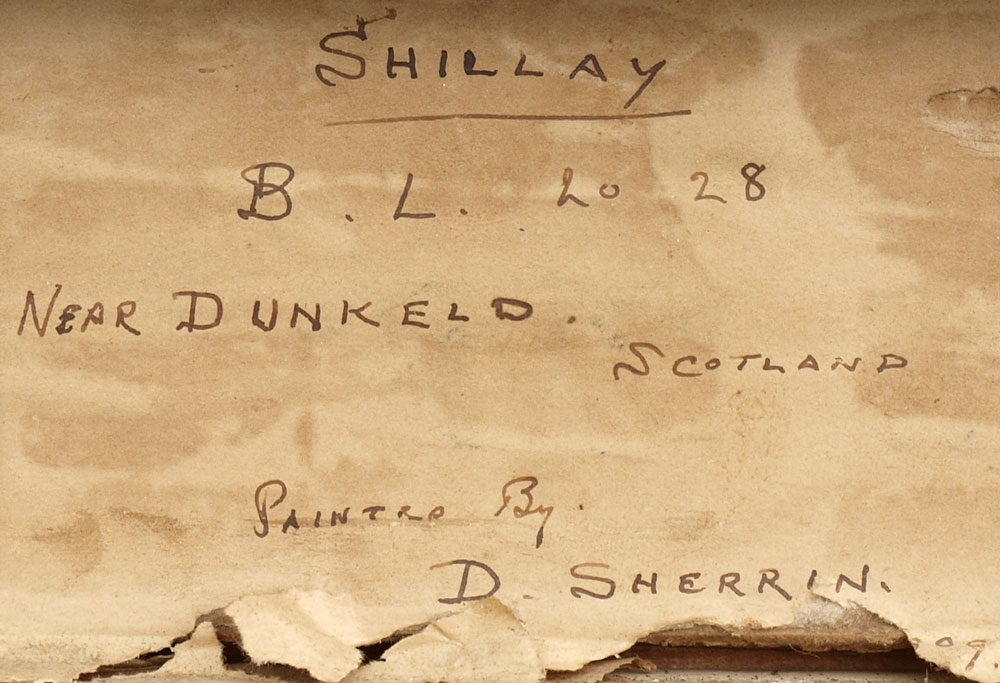 SHILLAY
B. L. 20 28
NEAR DUNKELD.
SCOTLAND
PAINTED By.
D. SHERRIN.
09.